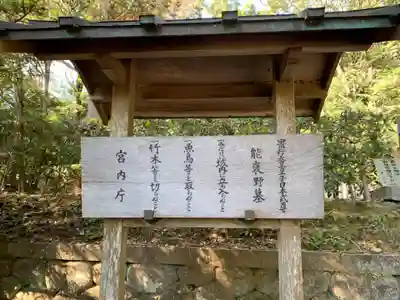 景行天皇皇子日本武尊
能褒野墓
一、みだりに域内に立入らぬこと
一、魚鳥等を取らぬこと
一、竹木等を切らぬこと
宮内庁